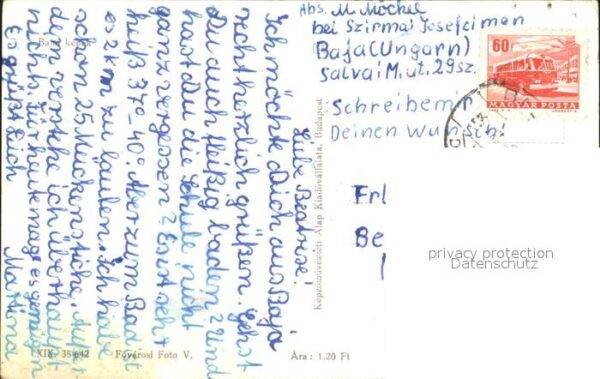 Baja képek
Liebe Beatrise!
Ich möchte Dich aus Baja
recht herzlich grüßen. Gehst
Du auch fleißig baden? Und
hast Du die Schule nicht
ganz vergessen? Es ist sehr
heiß 37-40°. Aber zum Bad ist
es 2 km zu laufen. Ich habe
schon 25 Mückenstiche. Außer
dem verstehe ich überhaupt
nichts. Für heute mag es genügen
Es grüßt Dich
Martina
XIX. 38/642 Fővárosi Foto V. Ára: 1.20 Ft
Képzőművészeti Alap Kiadóvállalata, Budapest
Abs. M. Möckel
bei Szirmai Josefcimen
Baja (Ungarn)
Salvai M. ut. 29 sz.
Schreibe mir
Deinen Wunsch!
60f
MAGYAR POSTA
Frl
Be
privacy protection
Datenschutz